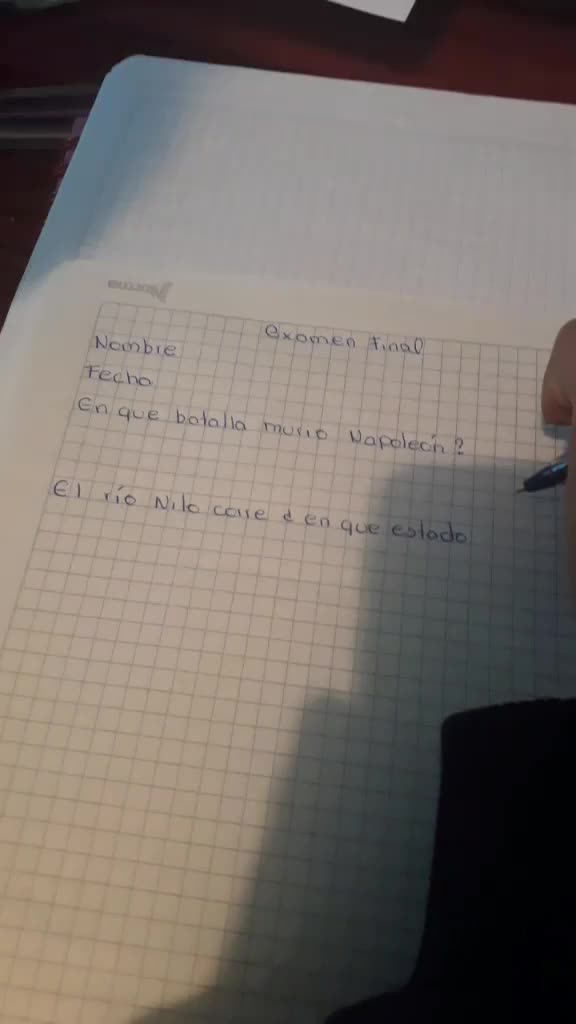 Norma
Examen final
Nombre
Fecha
En que batalla murio Napoleón?
El río Nilo corre ¿ en que estado